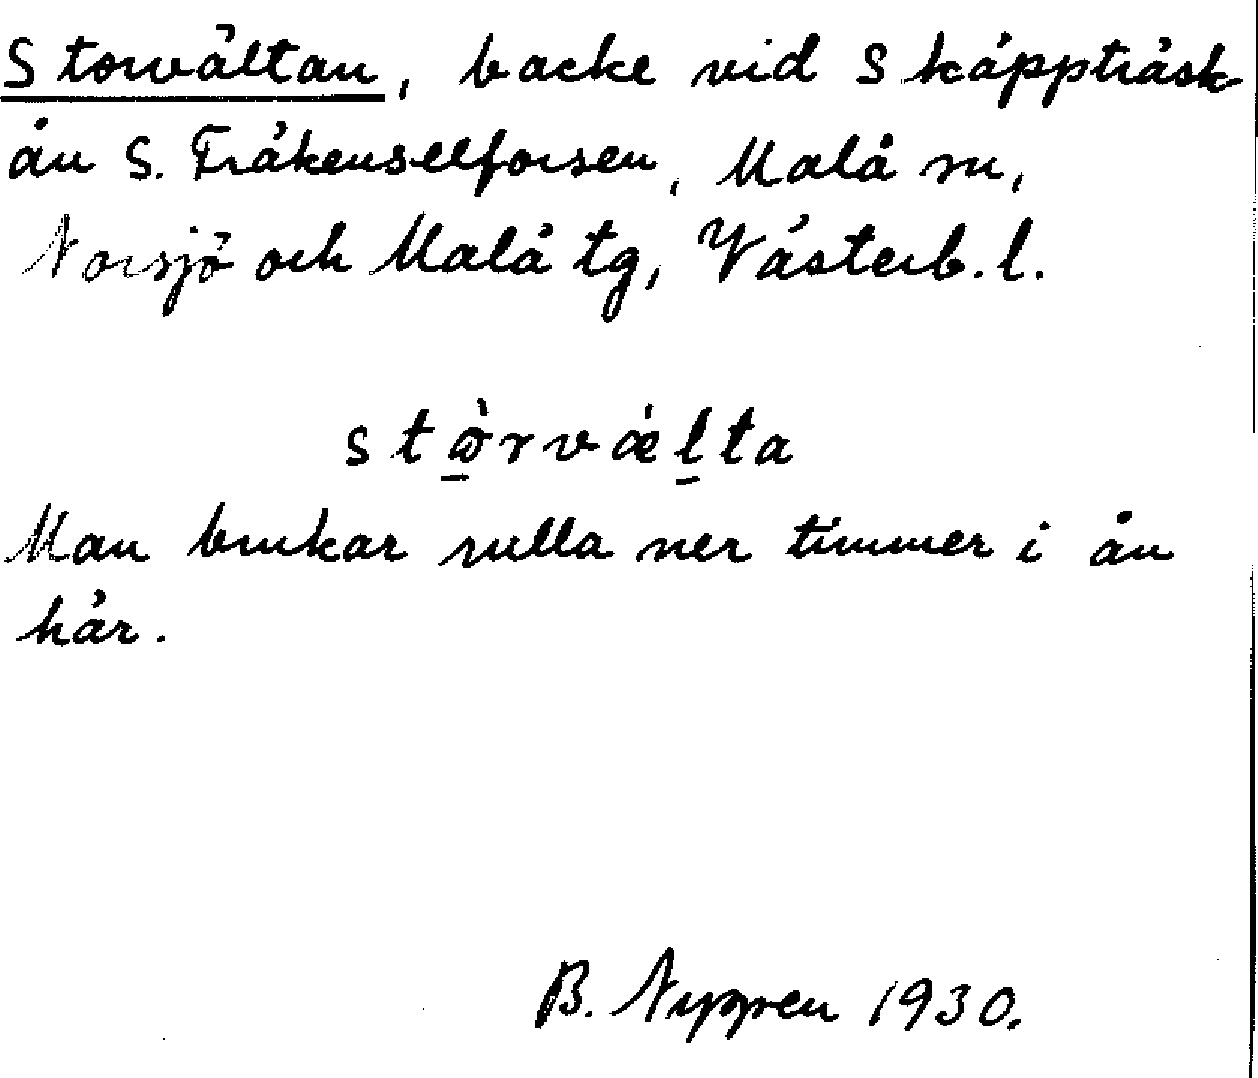 Storvältan, backe vid Skäppträsk
ån S. Fräkenselforsen, Malå sn,
Norsjö och Malå tg, Västerb. l.
stòrvæ̀lta
Man brukar rulla ner timmer i ån
här.
B. Nygren 1930.